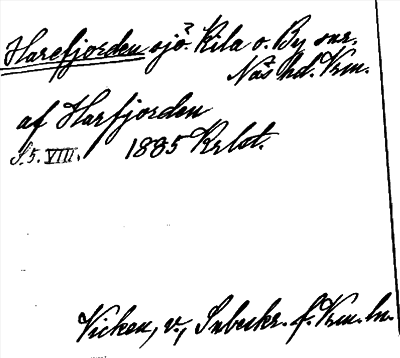 Harefjorden sjö? Kila o. By snr.
Näs hd. Vrm.
af Harfjorden
S. 5. VIII. 1885 Krlst.
Vicken, v., Snbeskr. f. Vrm. ln.